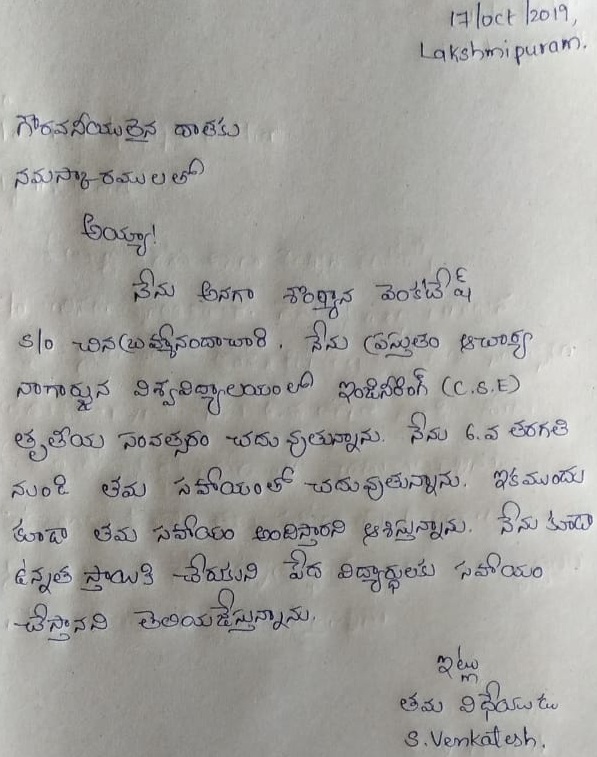 17/oct/2019,
Lakshmipuram.
గౌరవనీయులైన దాతకు
నమస్కారములతో
అయ్యా!
నేను అనగా వెంకటేష్
S/o చినబ్రహ్మానందాచారి. నేను ప్రస్తుతం ఆచార్య
నాగార్జున విశ్వవిద్యాలయంలో ఇంజనీరింగ్ (C.S.E)
తృతీయ సంవత్సరం చదువుతున్నాను. నేను 6.వ తరగతి
నుండి తమ సహాయంతో చదువుతున్నాను. ఇకముందు
కూడా తమ సహాయం అందిస్తారని ఆశిస్తున్నాను. నేను కూడా
ఉన్నత స్తాయికి చేరుకుని పేద విద్యార్ధులకు సహాయం
చేస్తానని తెలియజేస్తున్నాను.
ఇట్లు
తమ విధేయుడు
S.Venkatesh.